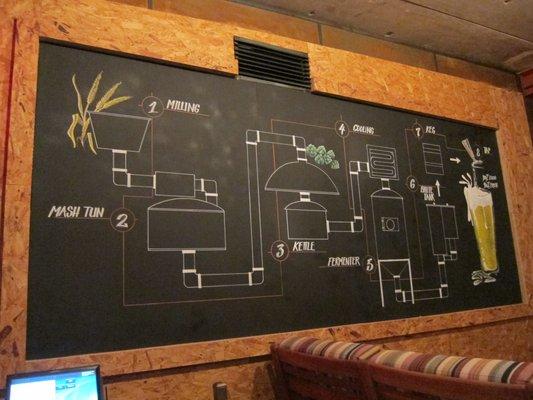 1 MILLING
MASH TUN 2
3 KETTLE
4 COOLING
FERMENTER 5
6 BRITE
TANK
7 KEG
8 TAP